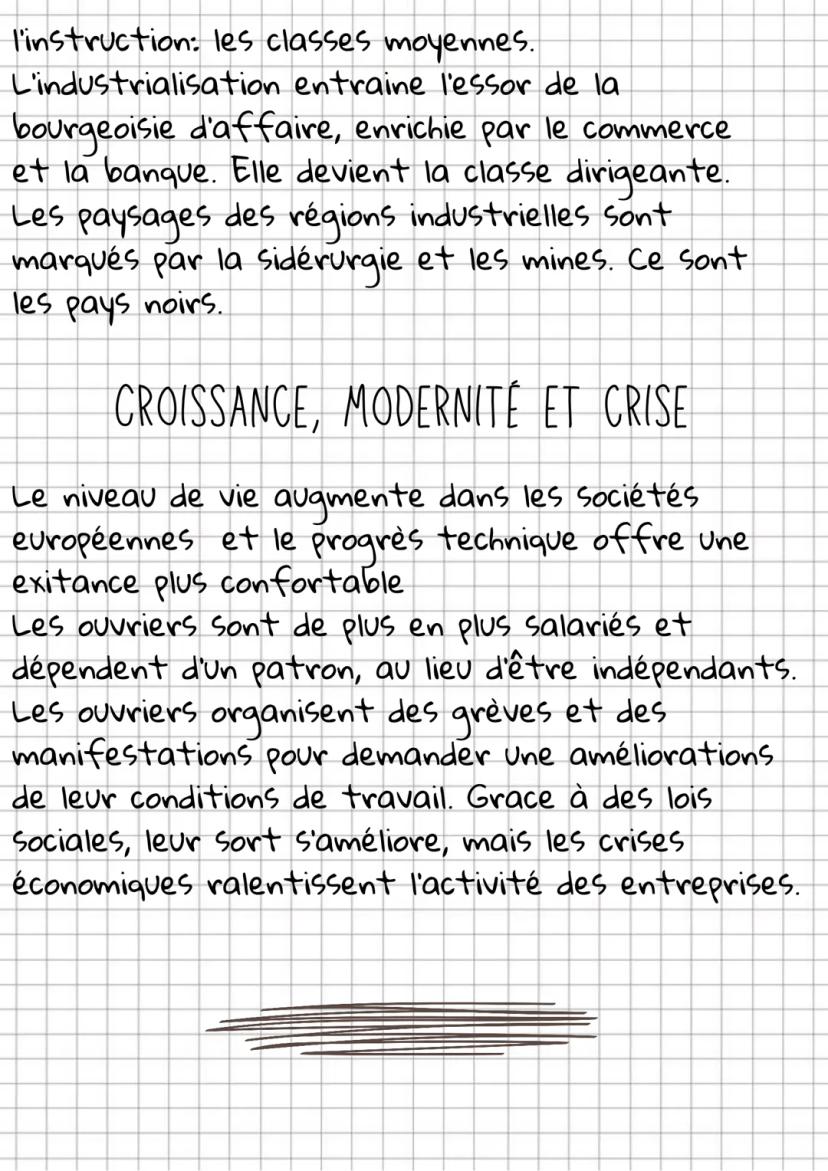 l'instruction: les classes moyennes.
L'industrialisation entraine l'essor de la
bourgeoisie d'affaire, enrichie par le commerce
et la banque. Elle devient la classe dirigeante.
Les paysages des régions industrielles sont
marqués par la sidérurgie et les mines. Ce sont
les pays noirs.
CROISSANCE, MODERNITÉ ET CRISE
Le niveau de vie augmente dans les sociétés
européennes et le progrès technique offre une
exitance plus confortable
Les ouvriers sont de plus en plus salariés et
dépendent d'un patron, au lieu d'être indépendants.
Les ouvriers organisent des grèves et des
manifestations pour demander une améliorations
de leur conditions de travail. Grace à des lois
sociales, leur sort s'améliore, mais les crises
économiques ralentissent l'activité des entreprises.